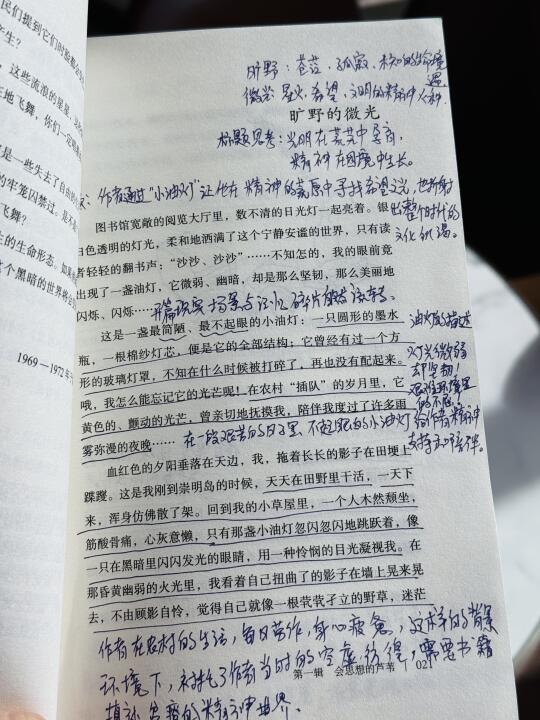 民们提到它们时总
产生？
，这些流浪的星星，
由地飞舞，你们一定
是一些失去了自由
的牢笼囚禁过。是不
飞舞？
生的生命形态。如果
个黑暗的世界将会
1969—1972年
旷野：苍茫、孤寂、
微光：星火、希望、
旷野的微光
标题思考：光明在荒芜中孕育，
精神在困境中生长。
作者通过“小油灯”让他在精神的荒原中寻找希望之光，也折射
出整个时代的
文化饥渴。
图书馆宽敞的阅览大厅里，数不清的日光灯一起亮着。银
白色透明的灯光，柔和地洒满了这个宁静安谧的世界，只有读
者轻轻的翻书声：“沙沙、沙沙”……不知怎的，我的眼前竟
出现了一盏油灯，它微弱、幽暗，却是那么坚韧，那么美丽地
闪烁、闪烁……
开篇现实场景与记忆碎片
这是一盏最简陋、最不起眼的小油灯：一只圆形的墨水
瓶，一根棉纱灯芯，便是它的全部结构；它曾经有过一个方
形的玻璃灯罩，不知在什么时候被打碎了，再也没有配起来。
哦，我怎么能忘记它的光芒呢！在农村“插队”的岁月里，它
黄色的、颤动的光芒，曾亲切地抚摸我，陪伴我度过了许多雨
雾弥漫的夜晚……
油灯的描述
灯光微弱
却坚韧！
艰难环境里
的不屈！
在一段艰苦的岁月里，不起眼的小油灯给作者精神
支持和陪伴。
血红色的夕阳垂落在天边，我，拖着长长的影子在田埂上
蹀躞。这是我刚到崇明岛的时候，天天在田野里干活，一天下
来，浑身仿佛散了架。回到我的小草屋里，一个人木然颓坐，
筋酸骨痛，心灰意懒，只有那盏小油灯忽闪忽闪地跳跃着，像
一只在黑暗里闪闪发光的眼睛，用一种怜悯的目光凝视我。在
那昏黄幽弱的火光里，我看着自己扭曲了的影子在墙上晃来晃
去，不由顾影自怜，觉得自己就像一根茕茕孑立的野草，迷茫
作者在农村的生活，每日劳作，身心疲惫，这样的背景
环境下，衬托了作者当时的空虚彷徨，需要书籍
第一辑 会思想的芦苇 02
填补贫瘠的精神世界。